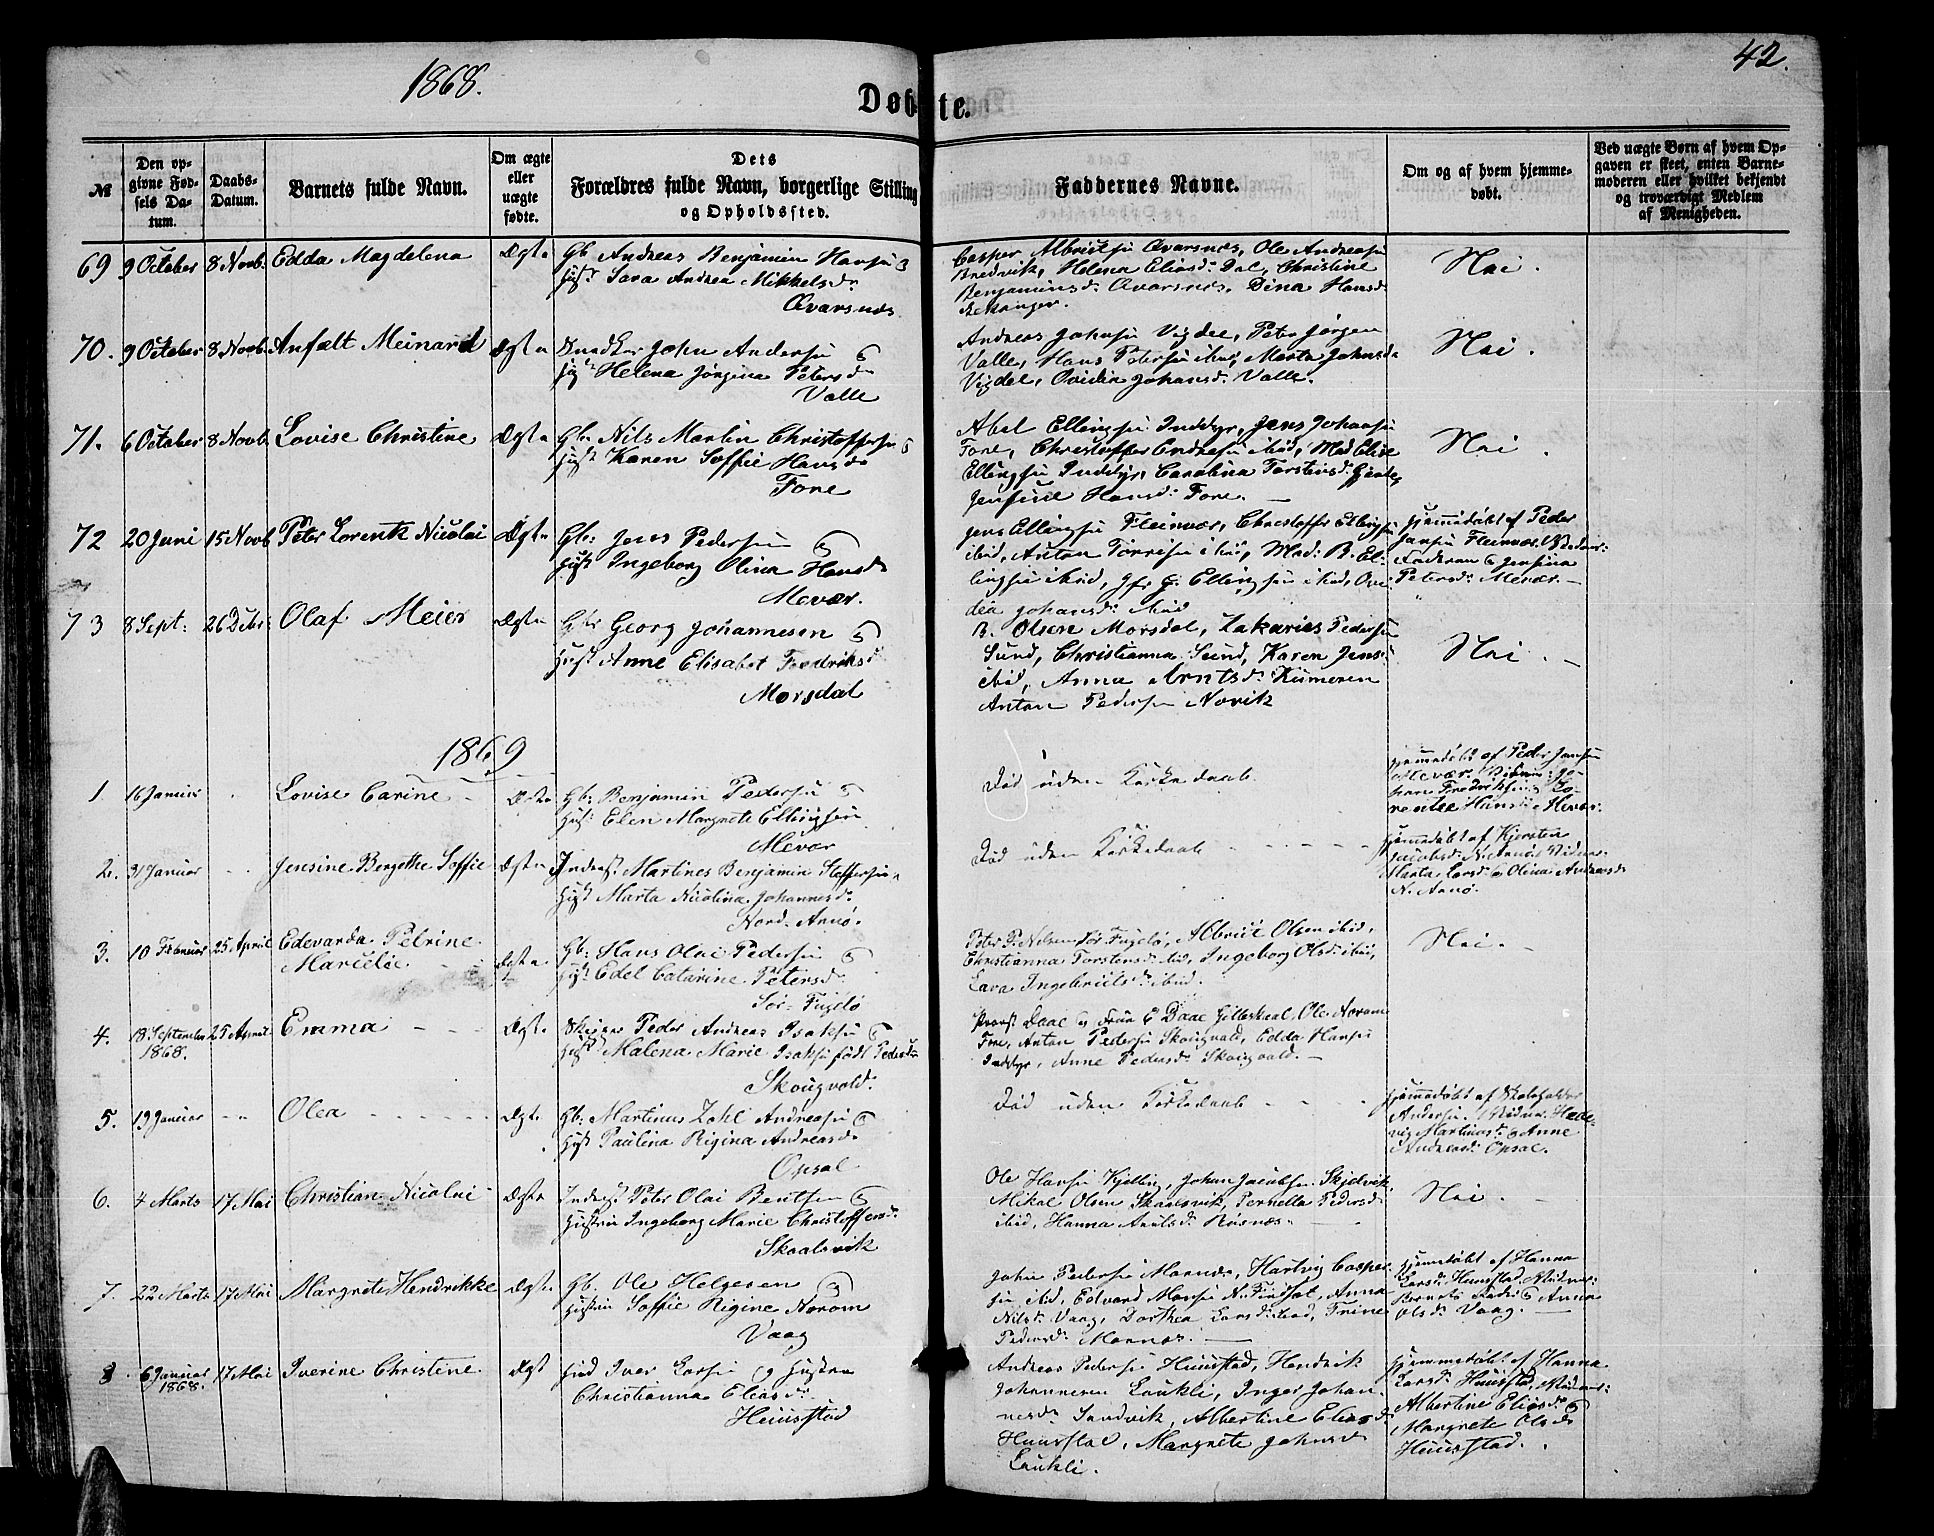 1868.
42.
Døbte.
№
Den opgivne Fødsels Datum.
Daabs-Datum.
Barnets fulde Navn.
Om ægte eller uægte fødte.
Dets Forældres fulde Navn, borgerlige Stilling og Opholdssted.
Faddernes Navne.
Om og af hvem hjemmedøbt.
Ved uægte Børn af hvem Opgaven er skeet, enten Barnemoderen eller hvilket bekjendt og troværdigt Medlem af Menigheden.
69 9 October 8 Novb. Edda Magdelena Ægte Gb Andreas Benjamin Hansen
Sara Andrea Mikkelsd:
Qvarsnæs
Casper Albrictsen Qvarsnæs, Ole Andreasen
Bredvik, Helena Eliasd: Dal, Christine
Benjaminsd: Qvarsnæs, Dina Hansd:
Nei.
70. 9 October 8 Novb. Anfelt Meinard Ægte John Andersen
Helena Jørgina Petersd:
Valle
Andreas Johnsen Vigdel, Peter Jørgen
Valle, Hans Petersen ibid, Marta Johnsd:
Vigdel, Ovidia Johansd: Valle.
Nei.
71. 6 October 8 Novb. Lovise Christine Ægte Gb. Nils Martin Christoffersen
Hust Karen Soffie Hansd:
Fore
Abel Ellingsen Inddyr, Jens Johansen
Fore, Christoffer Andresen ibid, Mad Elise
Ellingsen Inddyr, Carolina Torstensd:
Jensine Hansd: Fore.
Nei.
72 20 Juni 15 Novb Peter Lorentz Nicolai Ægte Gb: Jens Pedersen
Hust Ingeborg Olina Hansd:
Mevær.
Jens Ellingsen Fleinvær, Christoffer Ellingsen
ibid, Anton Torrisen ibid, Mad: B. El-
lingsen ibid, Jfr J. Ellingsen ibid, Ovi-
dia Johansd: ibid
Hjemmedøbt af Peder
Jansen Fleinvær. Vidner:
Faderen og Jensina
Petersd: Mevær.
73 8 Sept: 26 Debr: Olaf Meier Ægte Gbr Georg Johannesen
Hust Anne Elisabet Fredriksd:
Morsdal
B. Olsen Morsdal, Zakarias Pedersen
Sund, Christianna Sund, Karen Jensd:
ibid, Anna Arntsd: Kumeren
Anton Pedersen Novik
Nei.
1869
1. 16 Januar Lovise Carine Ægte Gb: Benjamin Pedersen
Hust Elen Margrete Ellingsen
Mevær
Død uden Kirkedaab
Hjemmedøbt af Peder Jansen
Mevær. Vidner: Jo-
han Fredriksen og Lo-
rentza Hansd: Mevær.
2. 31 Januar Jensine Bergithe Soffie Ægte Inderst Martines Benjamin Stoffersen
Hust Marta Nicolina Johannesd:
Nord-Arnø.
Død uden Kirkedaab
Hjemmedøbt af Kjersten
Jacobsd: N. Arnø. Vidner:
Marta Larsd: og Olina Andreasd:
N. Arnø.
3. 10 Februar 25 April Edevarda Petrine
Marcelie Ægte Gb. Hans Olai Pedersen
Hust. Edel Catarine Petersd:
Sør-Fugelø
Peter P. Nilsen Sør Fugelø, Albrict Olsen ibid,
Christianna Torstensd: ibid, Ingeborg Olsd: ibid,
Lava Ingebrictsd: ibid.
Nei.
4. 18 September 1868. 25 April Emma Ægte Peder Andreas Isaksen
Hust Malena Marie Isaksen født Pedersd:
Skougvold.
Provst Daae og Frue E Daae Gilleskaal, Ole Norum
Fore, Anton Pedersen Skougvold, Edda Hansen
Inddyr, Anne Pedersd: Skougvold.
5. 19 Januar Olea Ægte Gb: Martinus Zahl Andreasen
Hust Paulina Rigina Andreasd:
Opsal
Død uden Kirkedaab
Hjemmedøbt af Skoleholder
Andersen. Vidner: Hede-
vig Martinusd: og Anne
Andreasd: Opsal.
6. 4 Marts 17 Mai Christian Nicolai Ægte Inderst Peter Olai Bentsen
Hustru Ingeborg Marie Christoffersd:
Skaalsvik
Ole Hansen Kjelling, Johan Jacobsen Skjelvik,
Mikal Olsen Skaalsvik, Pernella Pedersd:
ibid, Hanna Arntsd: Røsnæs
Nei.
7. 22 Marts 17 Mai Margrete Hendrikke Ægte Gb. Ole Helgesen
Hustru Soffie Rigine Norum
Vaag
John Pedersen Marnæs, Hartvig Casper-
sen ibid, Edvard Hansen N. Findset, Anna
Nilsd: Vaag, Dorthea Larsd: ibid, Trine
Pedersd: Marnæs.
Hjemmedøbt af Hanna
Larsd: Huusstad, Vidner:
Barnets Fader og Anna
Olsd: Vaag.
8 6 Januar 1868. 17 Mai Iverine Christine Ægt Iver Larsen og Hustru
Christianna Eliasd:
Huusstad
Andreas Pedersen Huusstad, Hendrik
Johannesen Laukli, Inger Johan-
nesd: Sandvik, Albertine Eliasd:
Huusstad, Margrete Johnsd:
Laukli.
Hjemmedøbt af Hanna
Larsd: Huusstad, Vidner:
Albertine Eliasd: og
Margrete Olsd:
Huusstad.